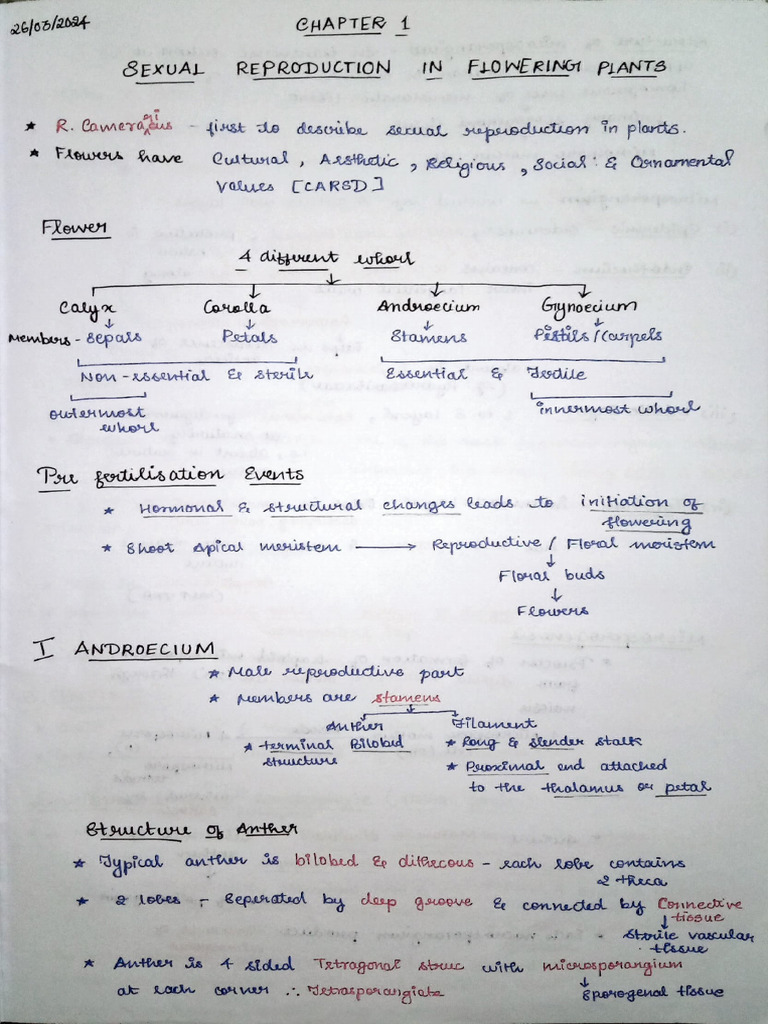 26/03/2024
CHAPTER 1
SEXUAL REPRODUCTION IN FLOWERING PLANTS
* R. Camerarius - first to describe sexual reproduction in plants.
* Flowers have Cultural, Aesthetic, Religious, Social & Ornamental
Values [CARSO]
Flower
4 different whorl
Calyx Corolla Androecium Gynoecium
Members - Sepals Petals Stamens Pistils/Carpels
Non-essential & sterile Essential & Fertile
outermost whorl innermost whorl
Pre fertilisation Events
* Hormonal & structural changes leads to initiation of
flowering
* Shoot Apical meristem → Reproductive / Floral meristem
↓
Floral buds
↓
Flowers
I ANDROECIUM
* Male reproductive part
* Members are stamens
Anther Filament
* terminal Bilobed structure
* Long & slender stalk
* Proximal end attached
to the thalamus or petal
Structure of Anther
* Typical anther is bilobed & dithecous - each lobe contains
2 theca
* 2 lobes - Seperated by deep groove & connected by Connective
↓ tissue
Sterile vascular
tissue
* Anther is 4 sided Tetragonal struc with microsporangium
at each corner ∴ Tetrasporangiate ↓ Sporogenal tissue